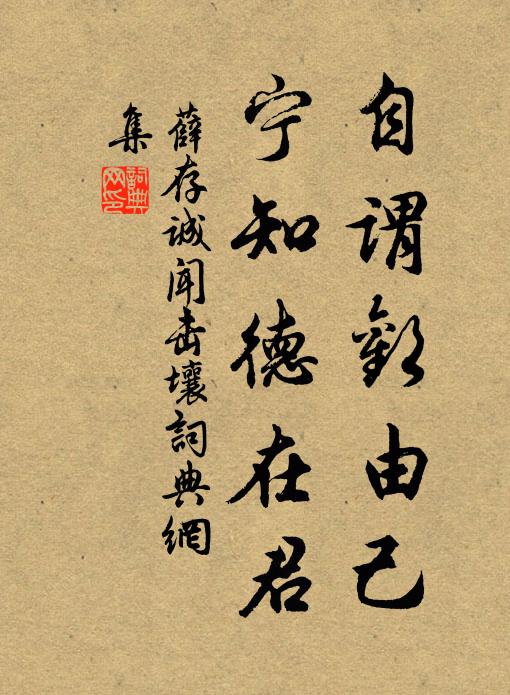 自谓欢由己
宁知德在君
薛存诚闻击壤词典网
集
词典网印